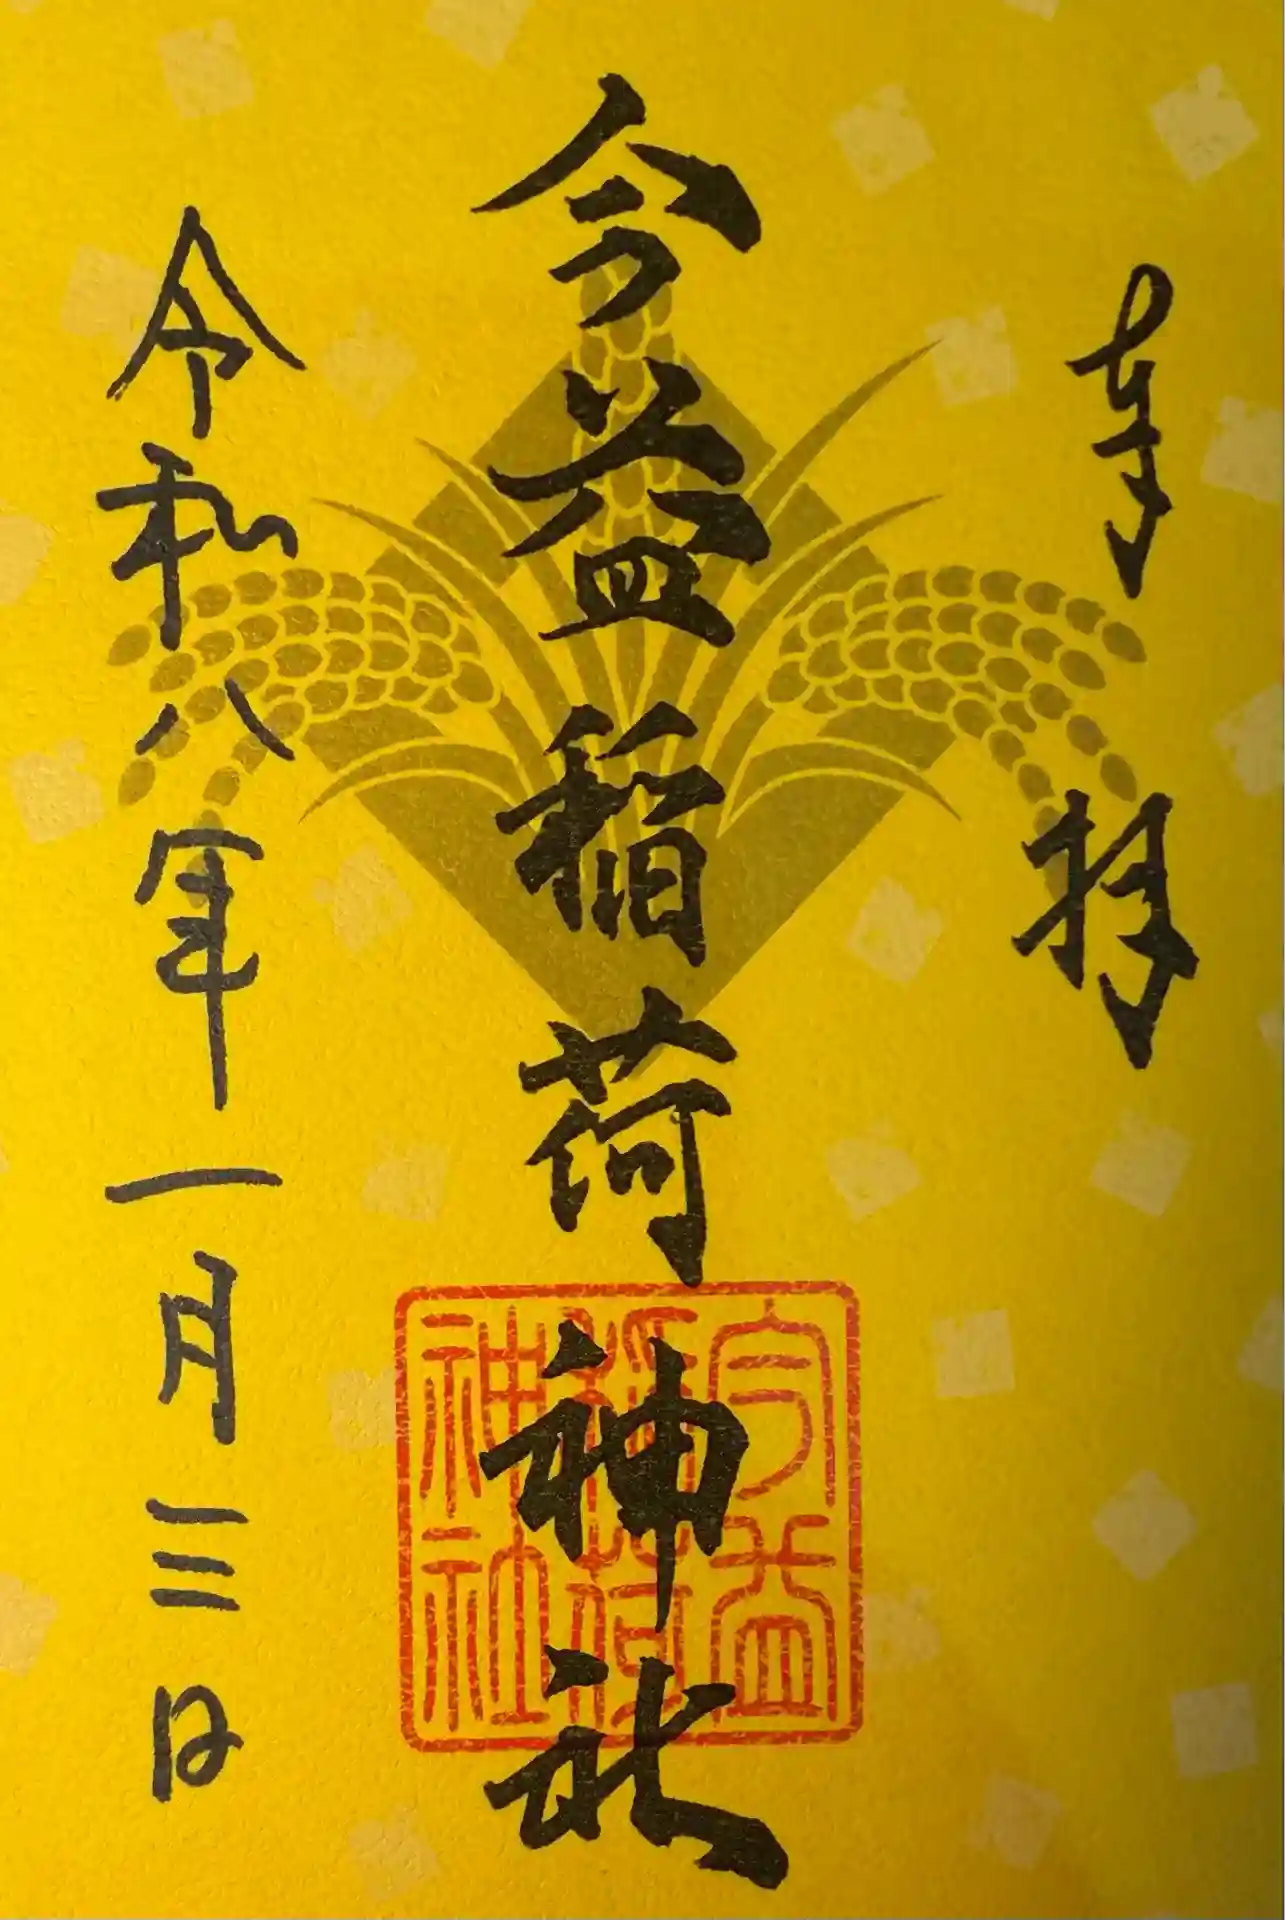 奉拝
今益稲荷神社
今益稲荷神社
令和八年一月三日